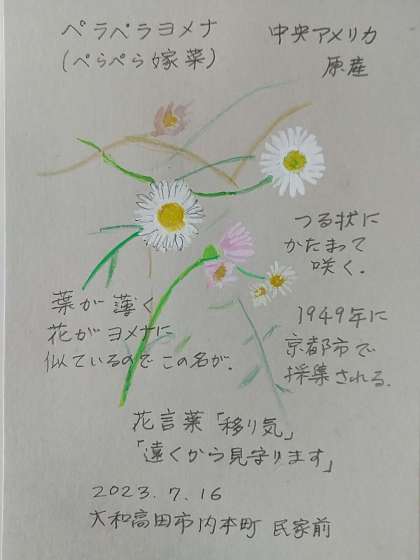 ペラペラヨメナ
(ぺらぺら嫁菜)
中央アメリカ
原産
つる状に
かたまって
咲く.
葉が薄く
花がヨメナに
似ているのでこの名が.
1949年に
京都市で
採集される.
花言葉「移り気」
「遠くから見守ります」
2023.7.16
大和高田市内本町 民家前